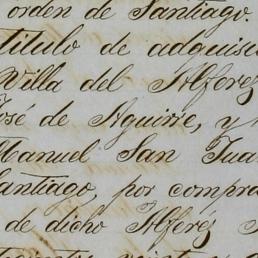 orden de Santiago.
título de adquisic
Villa del Alferez
José de Aguirre, y
Manuel San Jua
Santiago, por compra
de dicho Alferéz